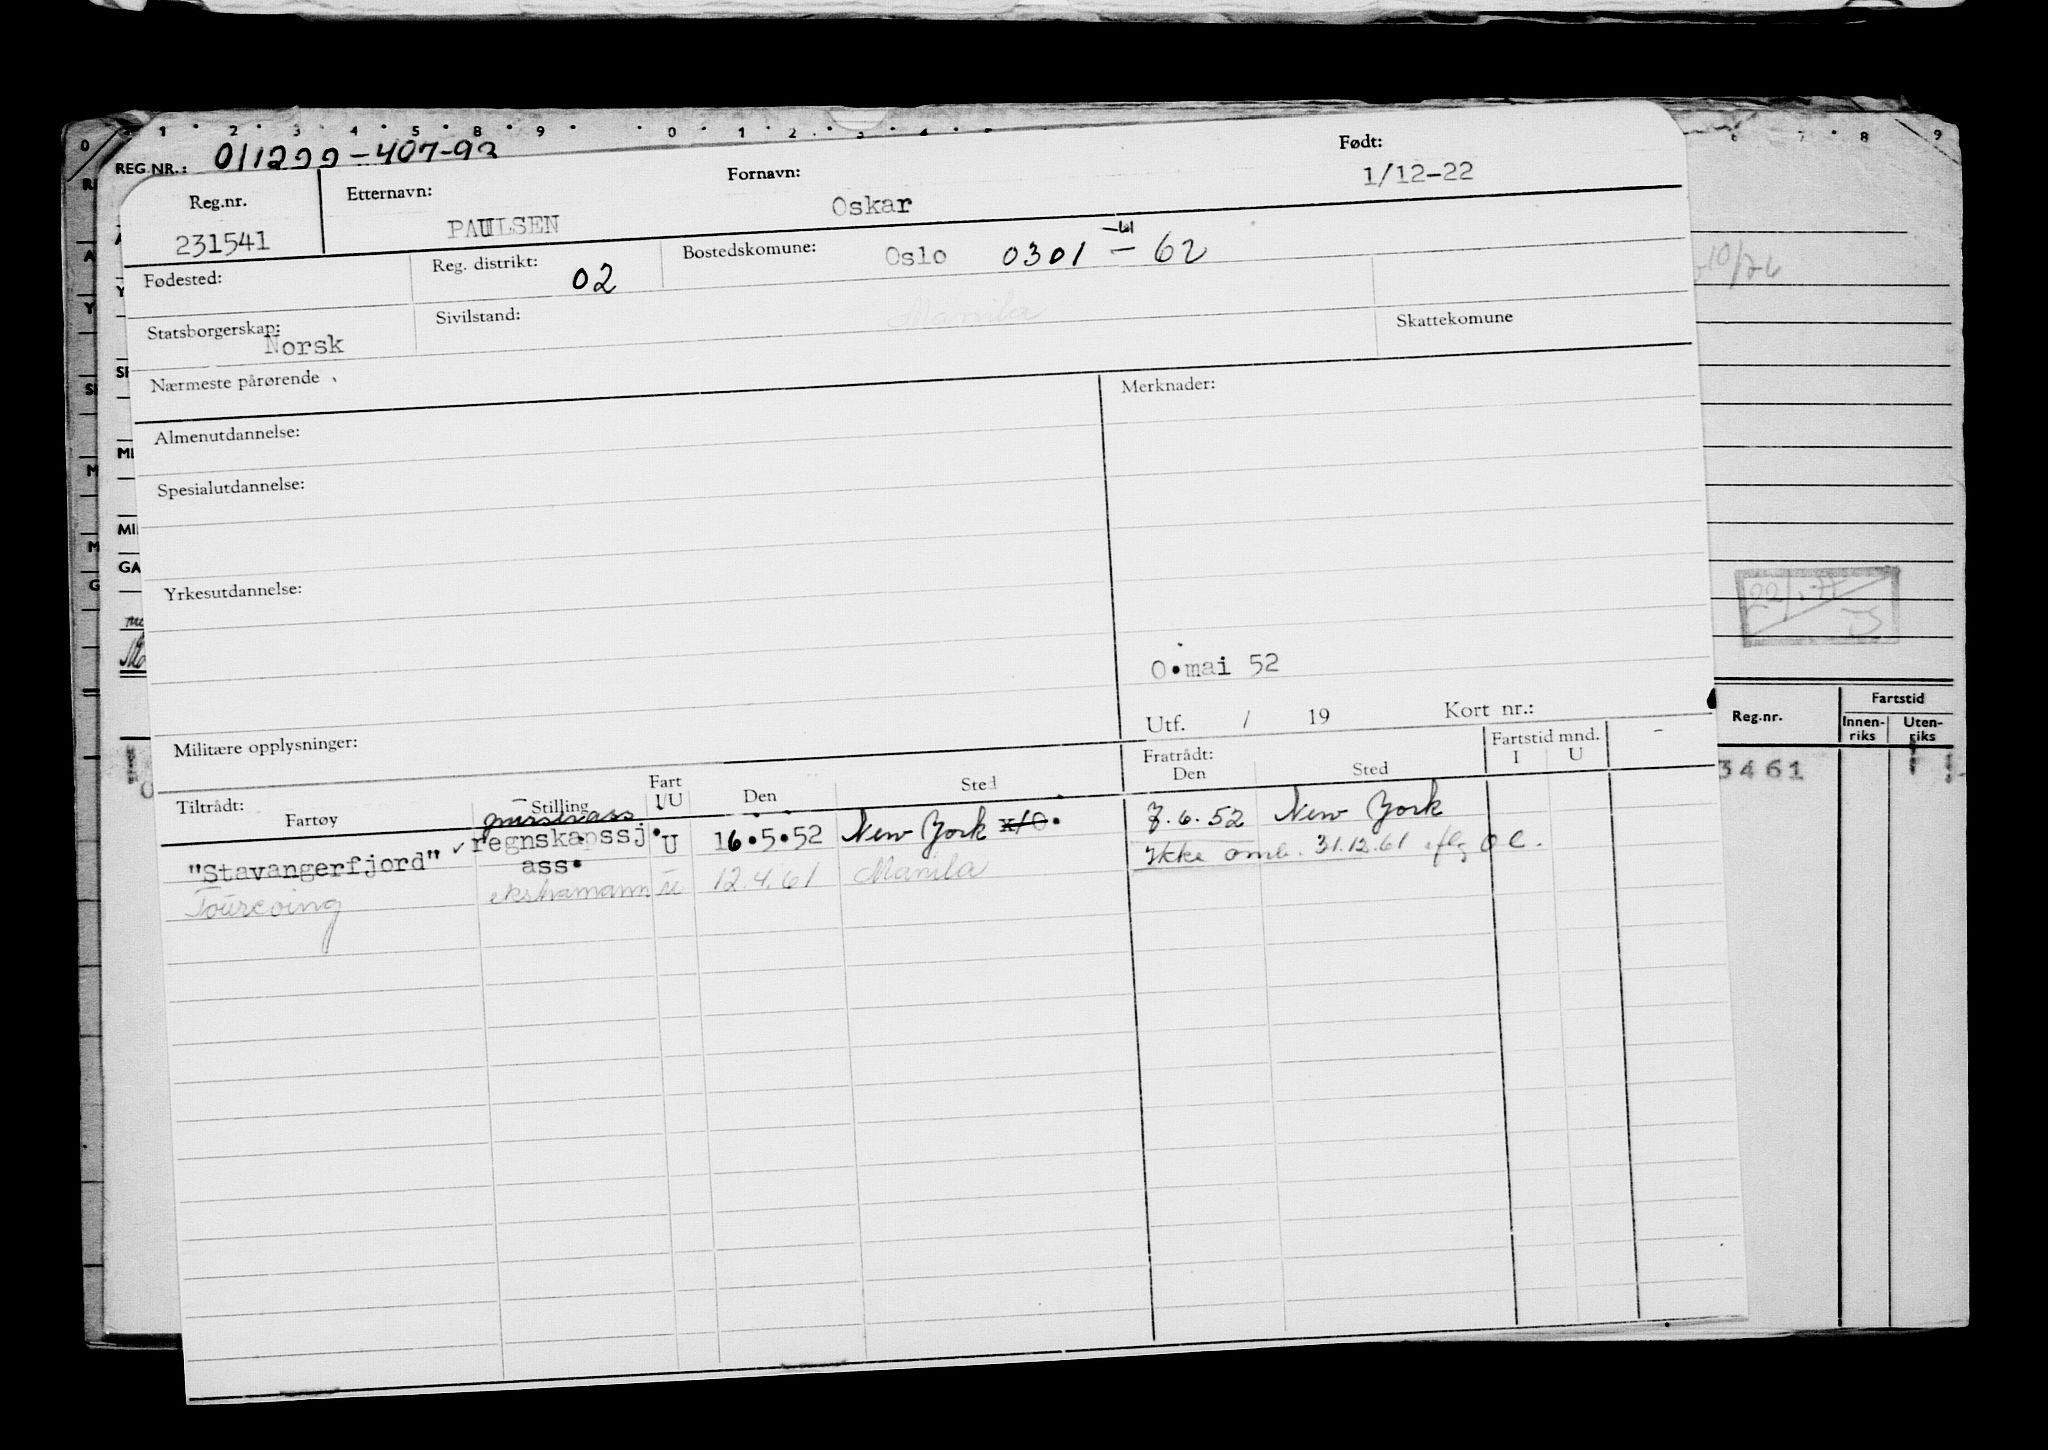 0 1 2 3 4 5 8 9 0 1 2 3 4 5 6 7 8 9
REG.NR.:
Reg.nr. Etternavn: Fornavn: Født:
231541 PAULSEN Oskar 1/12-22
Fødested: Reg. distrikt: 02 Bostedskomune: Oslo 0301 - 62
Statsborgerskap: Norsk Sivilstand: Manila Skattekomune
Nærmeste pårørende
Merknader:
Almenutdannelse:
Spesialutdannelse:
Yrkesutdannelse:
O.mai 52
Utf. / 19 Kort nr.:
Militære opplysninger:
Tiltrådt: Fartøy Stilling Fart I/U Den Sted Fratrådt: Den Sted Fartstid mnd. I U -
"Stavangerfjord" regnskapssj. ass. U 16.5.52 New York x/O. 7.6.52 New York
Tourcoing ekstramann U 12.4.61 Manila Ikke omb. 31.12.61 iflg O C.
10/76
Reg.nr. Fartstid
Innen-riks Uten-riks
3461